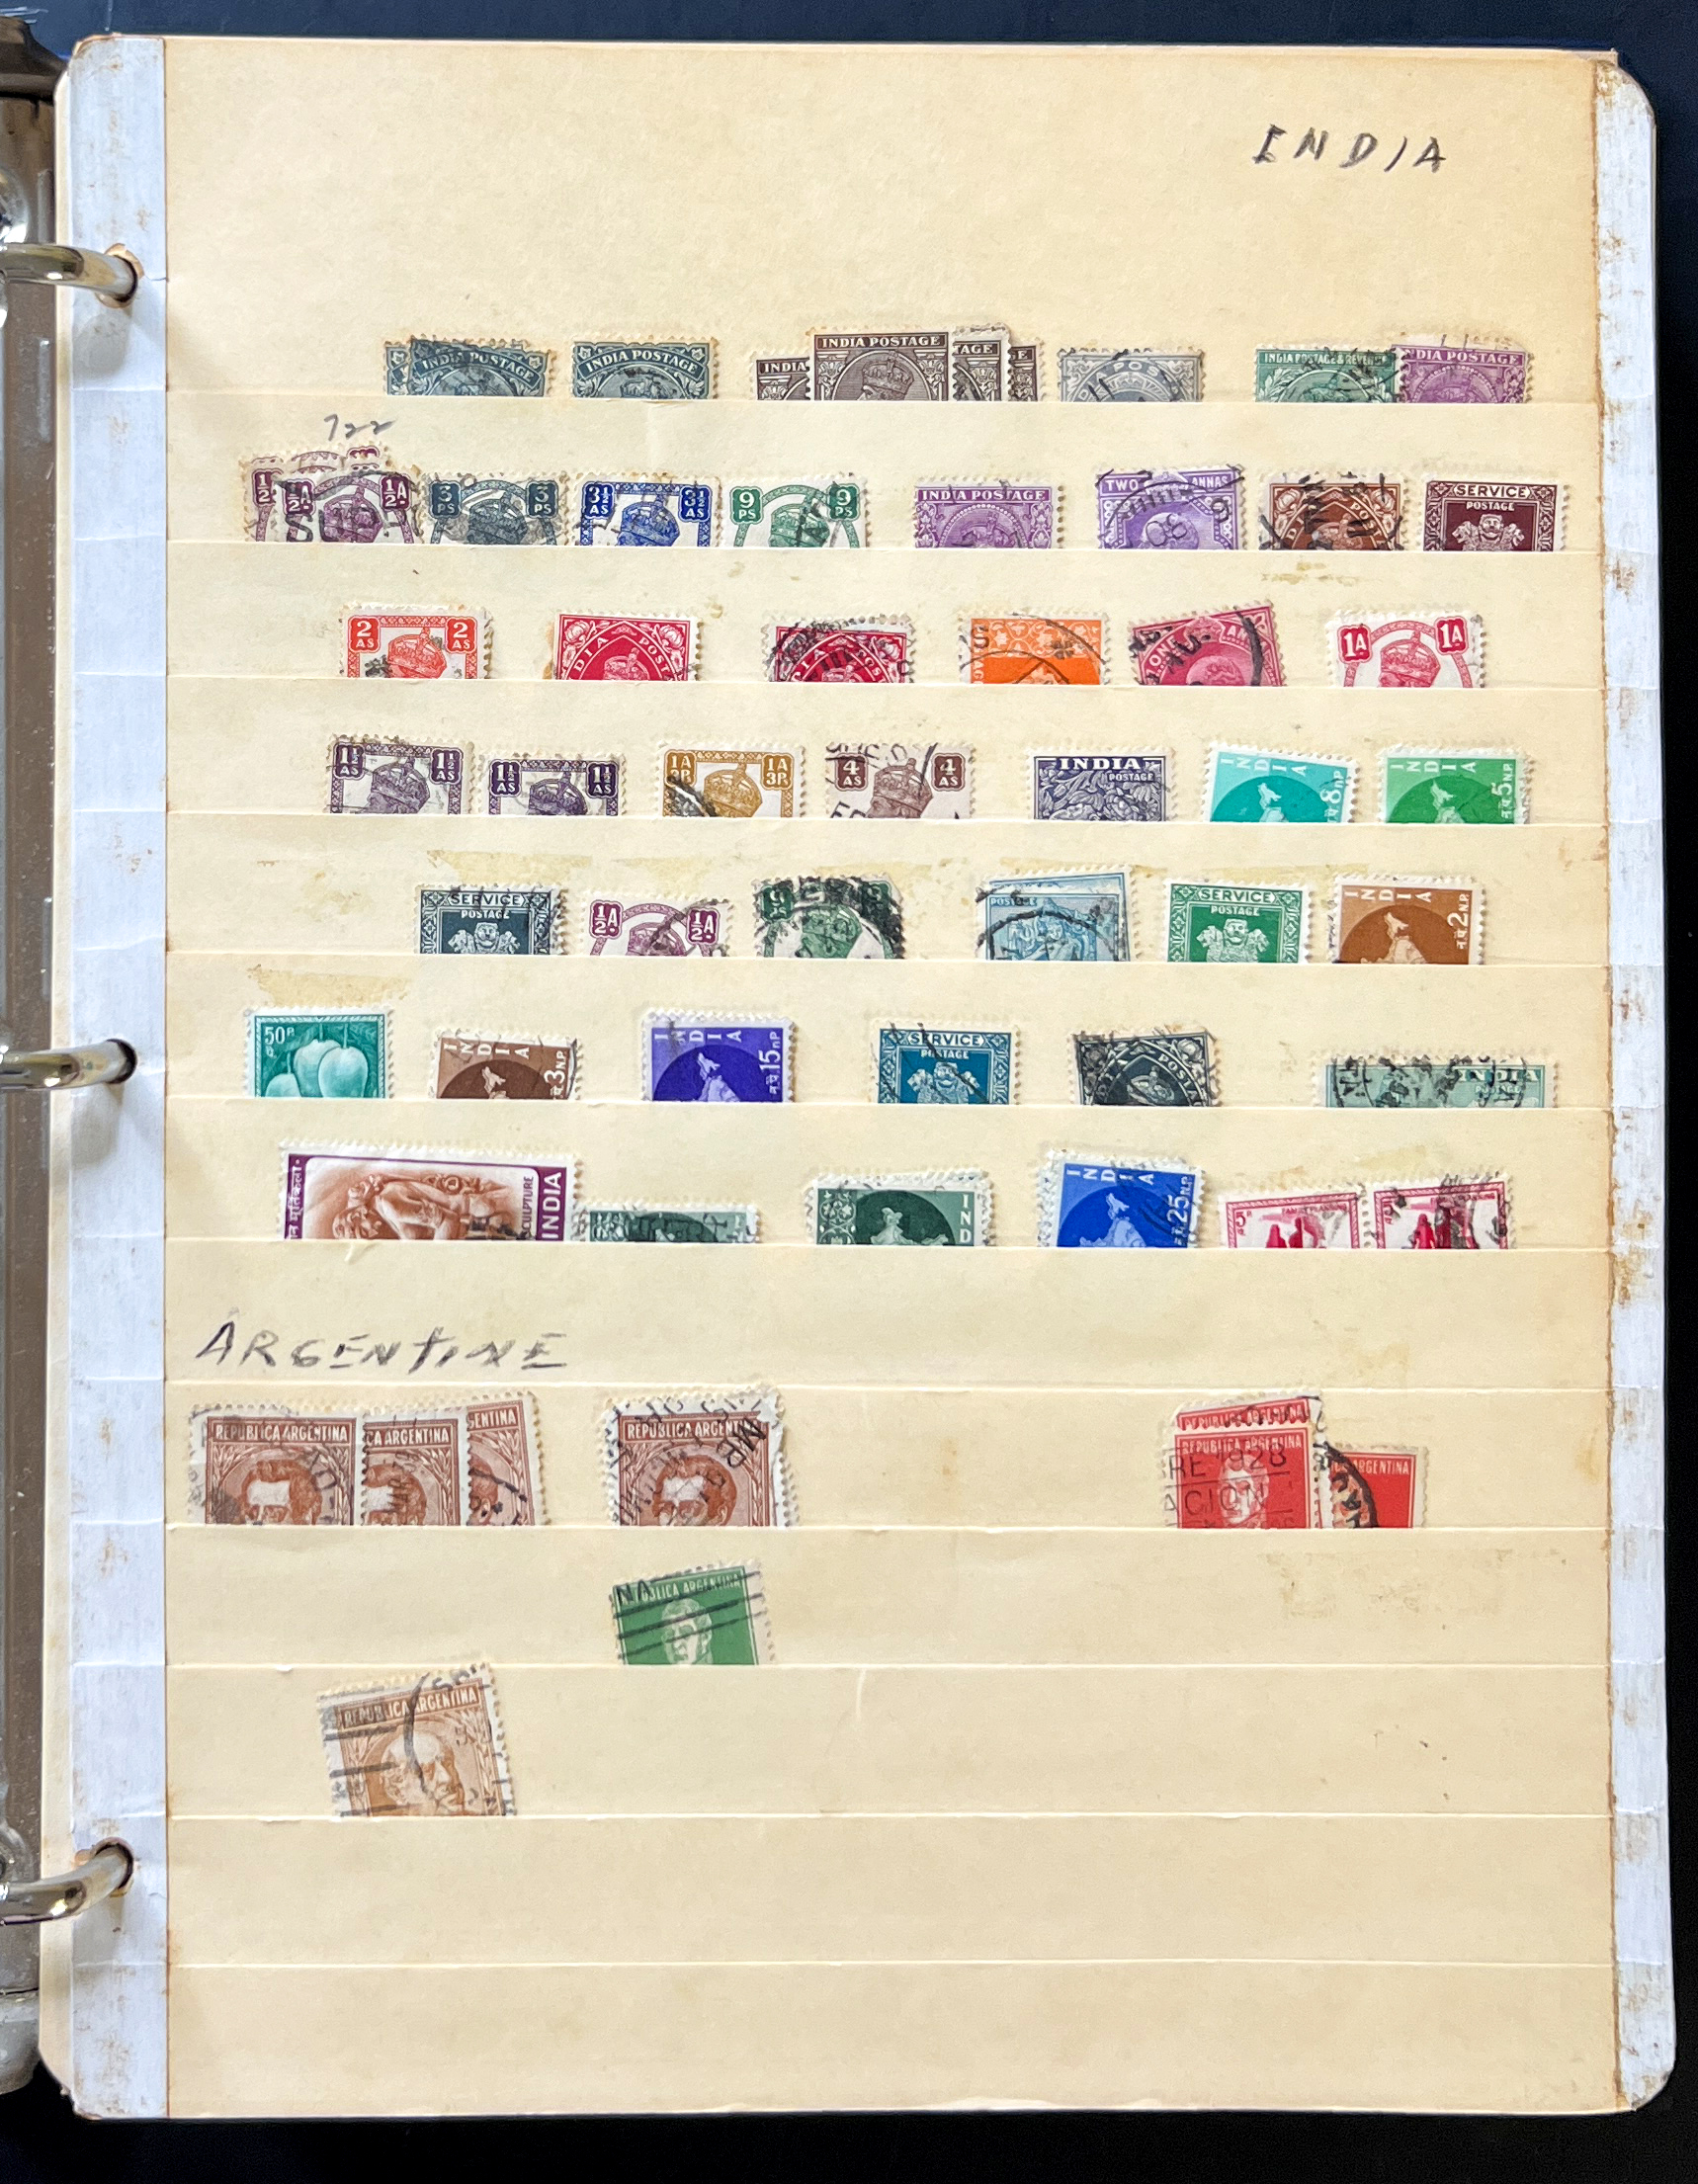 INDIA
INDIA POSTAGE
INDIA POSTAGE
INDIA
INDIA POSTAGE
TAGE
E
POST
INDIA POSTAGE & REVENUE
DIA POSTAGE
722
½
½A ½A
3 PS 3 PS
3½ AS 3½ AS
9 PS 9 PS
INDIA POSTAGE
TWO ANNAS
POST
SERVICE
POSTAGE
2 AS 2 AS
DIA POST
IA POS
ONE AN
1A 1A
1½ AS 1½ AS
1½ AS 1½ AS
1A 3P. 1A 3P.
4 AS 4 AS
INDIA
POSTAGE
INDIA न.पै. 8 NP
INDIA न.पै. 5 N.P.
SERVICE
POSTAGE
½A. ½A.
9 9
POSTAGE
SERVICE
POSTAGE
INDIA न.पै. 2 N.P.
50P
INDIA 3 N.P.
INDIA न.पै. 15 nP
SERVICE
POSTAGE
POSTAGE
INDIA
SCULPTURE
INDIA
IND
INDIA न.पै. 25 N.P.
5P FAMILY PLANNING
PLANNING
ARGENTINE
REPUBLICA ARGENTINA
CA ARGENTINA
GENTINA
REPUBLICA ARGENTIN
REPUBLICA ARGENTINA
REPUBLICA ARGENTINA
ARGENTINA
RE 1928
ACION
NA
BLICA ARGENTINA
REPUBLICA ARGENTINA